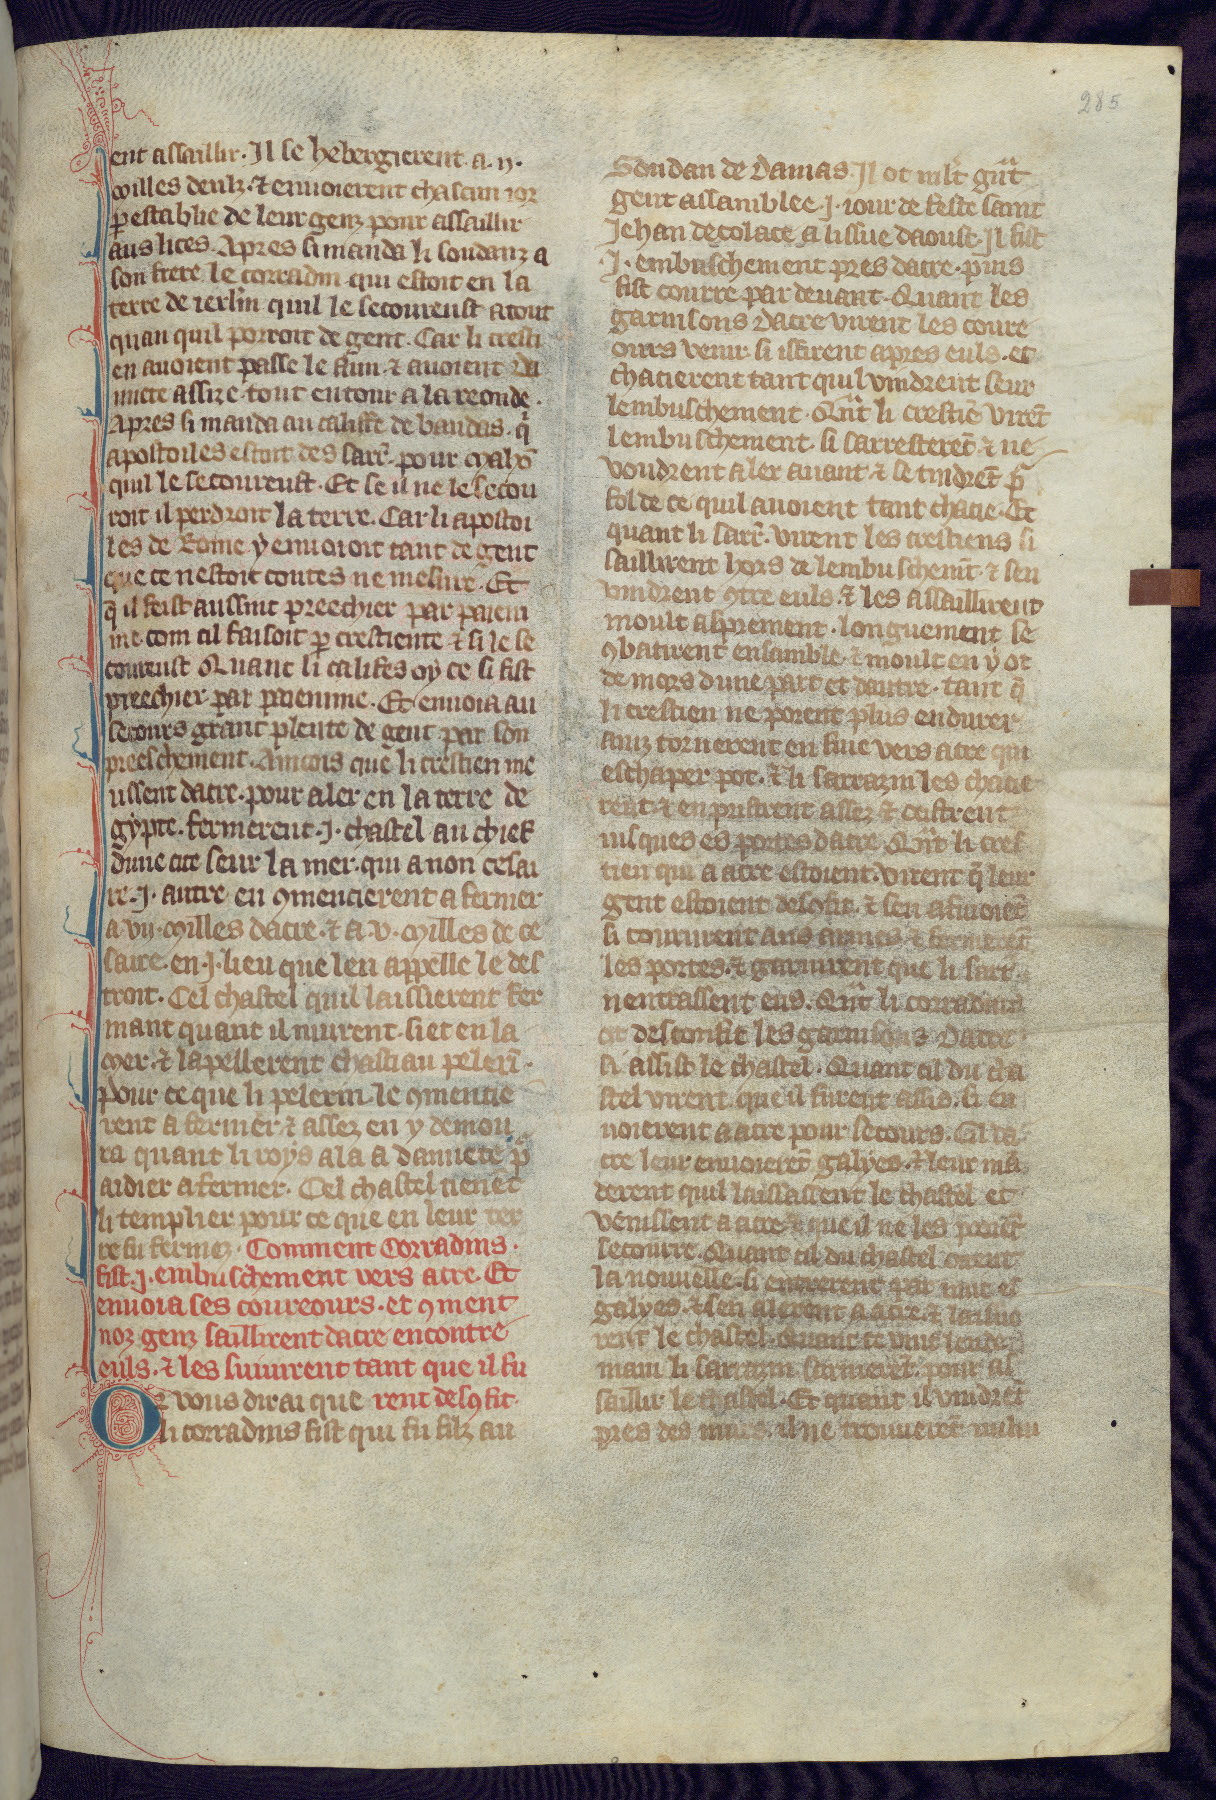 285
ent assaillir. Il se hebergierent a .ii.
milles deulz. ⁊ enuoierent chascun ior
ꝑ establie de leur genz pour assaillir
aus lices. Apres si manda li soudanz a
son frere le corradin qui estoit en la
terre de ierlm̄ quil le secoureust a tout
quan quil porroit de gent. Car li cresti
en auoient passe le flun. ⁊ auoient da
miete assize tout entour a la reonde.
Apres si manda au califfe de baudas. q̄
apostoiles estoit des sarr̄. pour
quil le secoureust. Et se il ne le secou
roit il perdroit la terre. Car li apostoi
les de Rome y enuoioit tant de gent
que ce nestoit contes ne mesure. Et
q̄ il feist aussint preechier par paieni
me. com cil faisoit ꝑ crestiente ⁊ si le se
coureust Quant li califes oy ce si fist
preechier par paienime. Et enuoia au
secours grant plente de gent par son
preeschement. Aincois que li crestien me
ussent dacre. pour aler en la terre de
gypte. fermerent .i. chastel au chief
dune cite seur la mer. qui a non cesai
re. .i. autre en ꝯmencierent a fermer
a .vii. milles dacre. ⁊ a .v. milles de ce
saire. en .i. lieu que len appelle le des
troit. Cel chastel quil laissierent fer
mant quant il murent. siet en la
mer. ⁊ lapellerent chastiau pelerī.
pour ce que li pelerin le ꝯmencie
rent a fermer. ⁊ assez en y demou
ra quant li roys ala a damiete pͬ
aidier a fermer. Cel chastel tienēt
li templier pour ce que en leur ter
re fu fermez. Comment Corradins.
fist .i. embuschement vers acre. Et
enuoia ses coureours. et ꝯment
noz genz saillirent dacre encontre
euls. ⁊ les suiuirent tant que il fu
Or vous dirai que rent desꝯfit.
li corradins fist qui fu filz au
Soudan de Damas. Il ot ml̄t gn̄t
gent assamblee .i. iour de feste saint
Jehan decolace a lissue daoust. Il fist
.i. embuschement pres dacre. puis
fist courre par deuant. Quant les
garnisons dacre virent les coure
ours venir. si issirent apres euls. et
chacierent tant quil vindrent seur
lembuschement. Qn̄t li crestiē virēt
lembuschement. si sarresterēt ⁊ ne
voudrent aler auant ⁊ se tindrēt pͬ
fol de ce quil auoient tant chacie. Et
quant li sarr̄. virent les crestiens si
saillirent hors de lembuschemt̄. ⁊ sen
vindrent ꝯtre euls. ⁊ les assaillirent
moult asprement. longuement se
ꝯbatirent ensamble. ⁊ moult en y ot
de mors dune part et dautre. tant q̄
li crestien ne porent plus endurer.
ainz tornerent en fuie vers acre qui
eschaper pot. ⁊ li sarrazin les chacie
rent. ⁊ en pristrent assez ⁊ ocistrent
iusques es portes dacre. Qn̄t li cres
tien qui a acre estoient. virent q̄ leur
gent estoient desꝯfit. ⁊ sen afuioiēt
si coururent aus armes ⁊ fermerēt
les portes. ⁊ garnirent que li sarr̄.
nentrassent ens. Qn̄t li corradins
ot desconfit les garnisons dacre
si assist le chastel. Quant cil du cha
stel virent que il furent assis. si en
uoierent a acre pour secours. Cil da
cre leur enuoierēt galyes. ⁊ leur mā
derent quil laissassent le chastel et
venissent a acre. que il ne les poroiēt
secourre. Quant cil du chastel oirent
la nouuelle. si entrerent par nuit es
galyes. ⁊ sen alerent a acre. ⁊ laissie
rent le chastel. Quant ce vint lende
main li sarrazin sarmerēt. pour as
saillir le chastel. Et quant il vindrēt
pres des murs. il ne trouuerēt nului